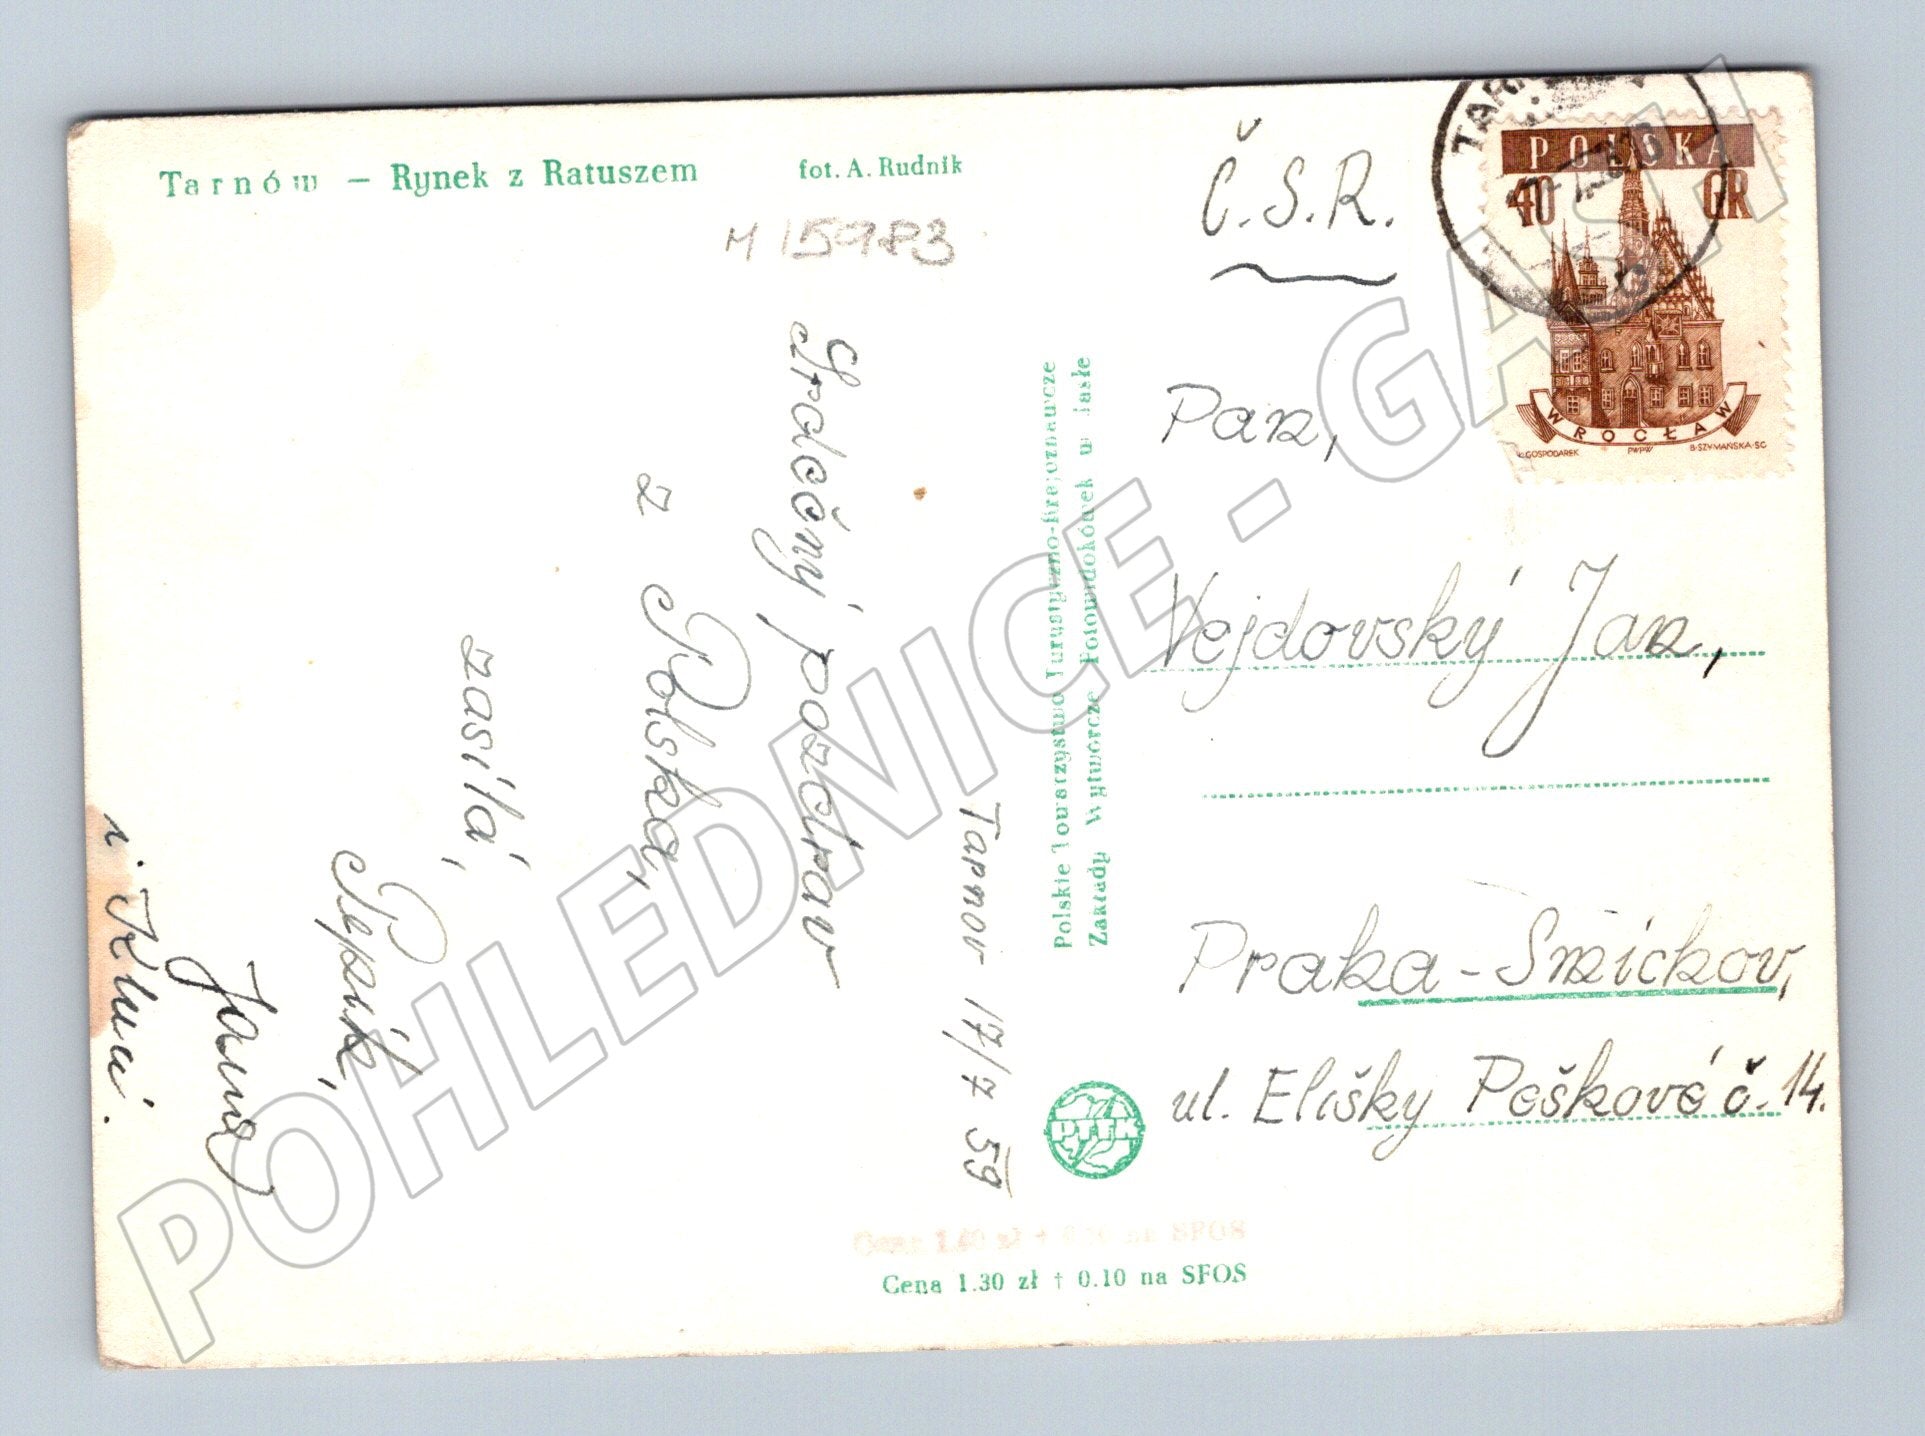 Tarnów – Rynek z Ratuszem
fot. A. Rudnik
M 15983
Tarnov 17/7 59
Srdečný pozdrav
z Polska,
zasílá,
Pepík,
Jana
Polskie Towarzystwo Turystyczno-Krajoznawcze
Zakłady Wytwórcze Fotowidokówek w Jaśle
PTTK
Cena 1.40 zł + 0.10 na SFOS
Cena 1.30 zł + 0.10 na SFOS
POLSKA
40 GR
WROCŁAW
GOSPODAREK PWPW B·SZYMAŃSKA·SC
Č.S.R.
Pan,
Vejdovský Jan,
Praha-Smíchov,
ul. Elišky Peškové č. 14.
POHLEDNICE - GASH